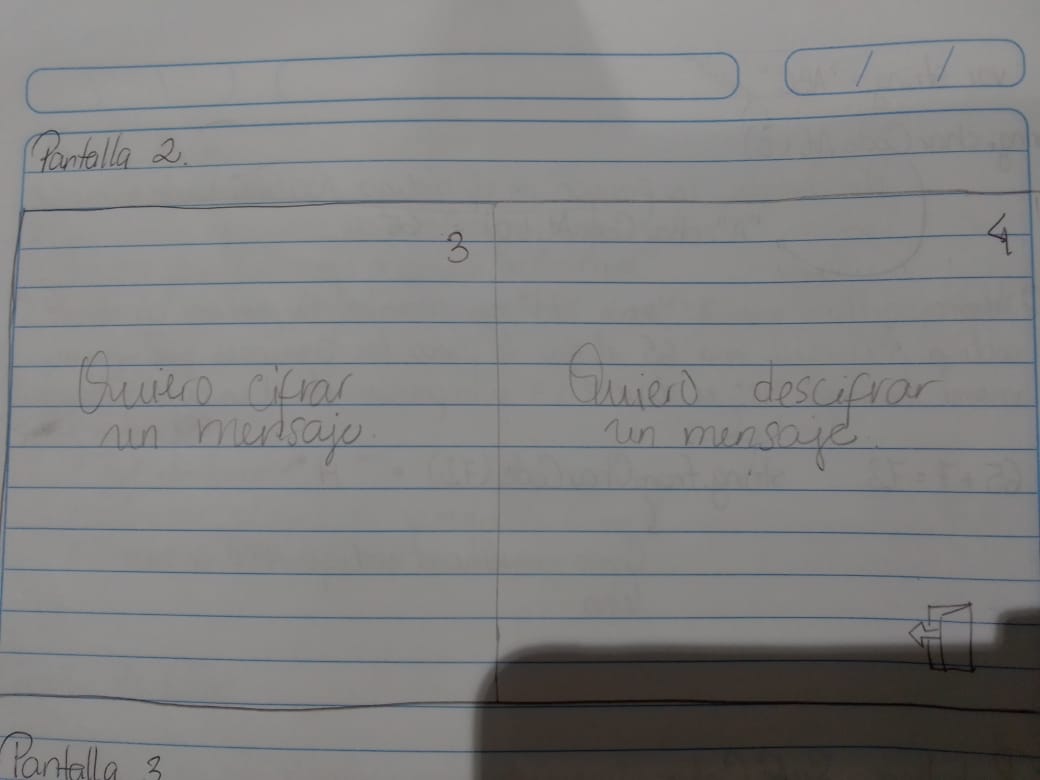 Pantalla 2.
3
4
Quiero cifrar
un mensaje.
Quiero descifrar
un mensaje.
Pantalla 3